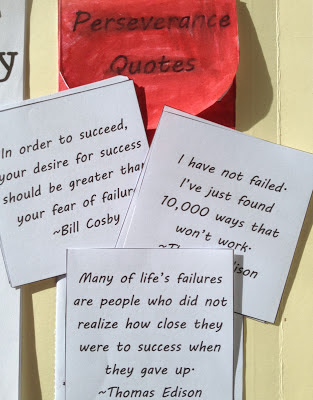 y
Perseverance
Quotes
In order to succeed,
your desire for success
should be greater than
your fear of failure
~Bill Cosby
I have not failed.
I've just found
10,000 ways that
won't work.
Many of life's failures
are people who did not
realize how close they
were to success when
they gave up.
~Thomas Edison